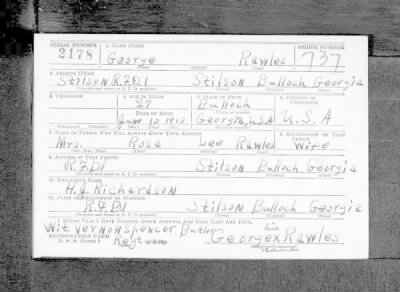 SERIAL NUMBER 1. NAME (Print) ORDER NUMBER
2178 George Rawles 737
2. ADDRESS (Print)
Stilson R.F.D.1 Stilson Bulloch Georgia
3. TELEPHONE 4. AGE IN YEARS 5. PLACE OF BIRTH 6. COUNTRY OF CITIZENSHIP
27 Bulloch
DATE OF BIRTH
June 10 1913 Georgia, U.S.A U.S.A
7. NAME OF PERSON WHO WILL ALWAYS KNOW YOUR ADDRESS 8. RELATIONSHIP OF THAT PERSON
Mrs. Rosa Lee Rawles Wife
9. ADDRESS OF THAT PERSON
R.F.D.1 Stilson Bulloch Georgia
10. EMPLOYER'S NAME
H. J. Richardson
11. PLACE OF EMPLOYMENT OR BUSINESS
R.F.D.1 Stilson Bulloch Georgia
I AFFIRM THAT I HAVE VERIFIED ABOVE ANSWERS AND THAT THEY ARE TRUE.
Wit Vernon Spencer his
REGISTRATION CARD George x Rawles
D. S. S. FORM 1